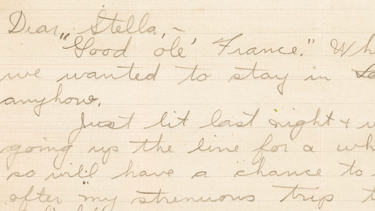 Dear Stella, –
"Good ole' France." Wh
we wanted to stay in
anyhow.
Just lit last night &
going up the line for a wh
so will have a chance to
after my strenuous trip t